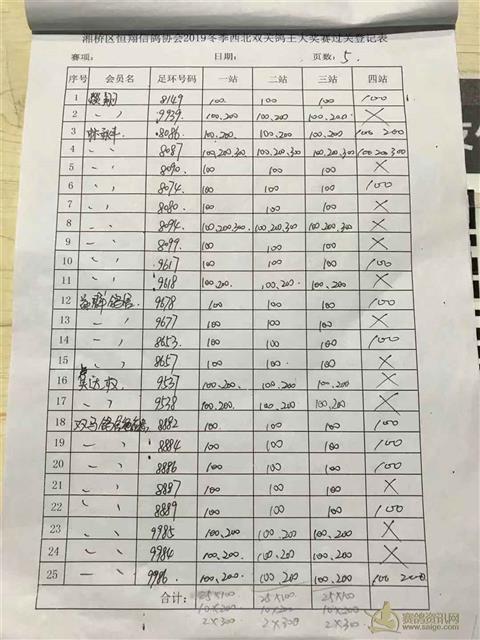 湘桥区恒翔信鸽协会2019冬季西北双关鸽王大奖赛过关登记表
赛项: 日期: 页数: 5.
序号 会员名 足环号码 一站 二站 三站 四站
1 8149 100. 100. 100. 100
2 〃 9939 100.200 100.200 100.200. X
3 8086 100.200 100.200 100.200. 100 200
4 〃 8087 100.200.300 100.200.300 100.200.300 100.200.300
5 〃 8090 100 100 100 X
6 〃 8074 100 100 100 100
7 〃 8080 100 100 100 X
8 〃 8094 100.200.300 100.200.300 100.200.300 X
9 〃 8099 100 100 100 X
10 〃 9617 100 100 100 100
11 〃 9618 100.200. 100.200. 100.200 X
12 9678 100 100 100 100
13 〃 9677 100 100 100 X
14 〃 8653 100 100 100 100
15 〃 8657 100 100 100 X
16 吴达权 9537 100.200 100.200 100.200 X
17 〃 9538 100.200 100.200 100.200 X
18 8882 100 100 100 100
19 〃 8884 100 100 100 100
20 〃 8886 100 100 100 100
21 〃 8887 100 100 100 X
22 〃 8889 100 100 100 100
23 〃 9985 100.200 100.200 100.200 X
24 〃 9984 100.200 100.200 100.200 X
25 〃 9986 100.200. 100.200 100.200 100 200
合计: 25×100 25×100 25×100
10×200 10×200 10×200
2×300 2×300 2×300
赛鸽资讯网
www.saige.com